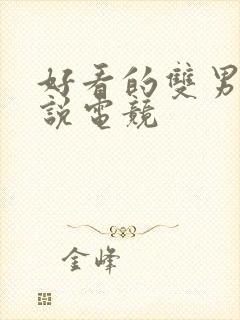 好看的雙男
說電競
金峰